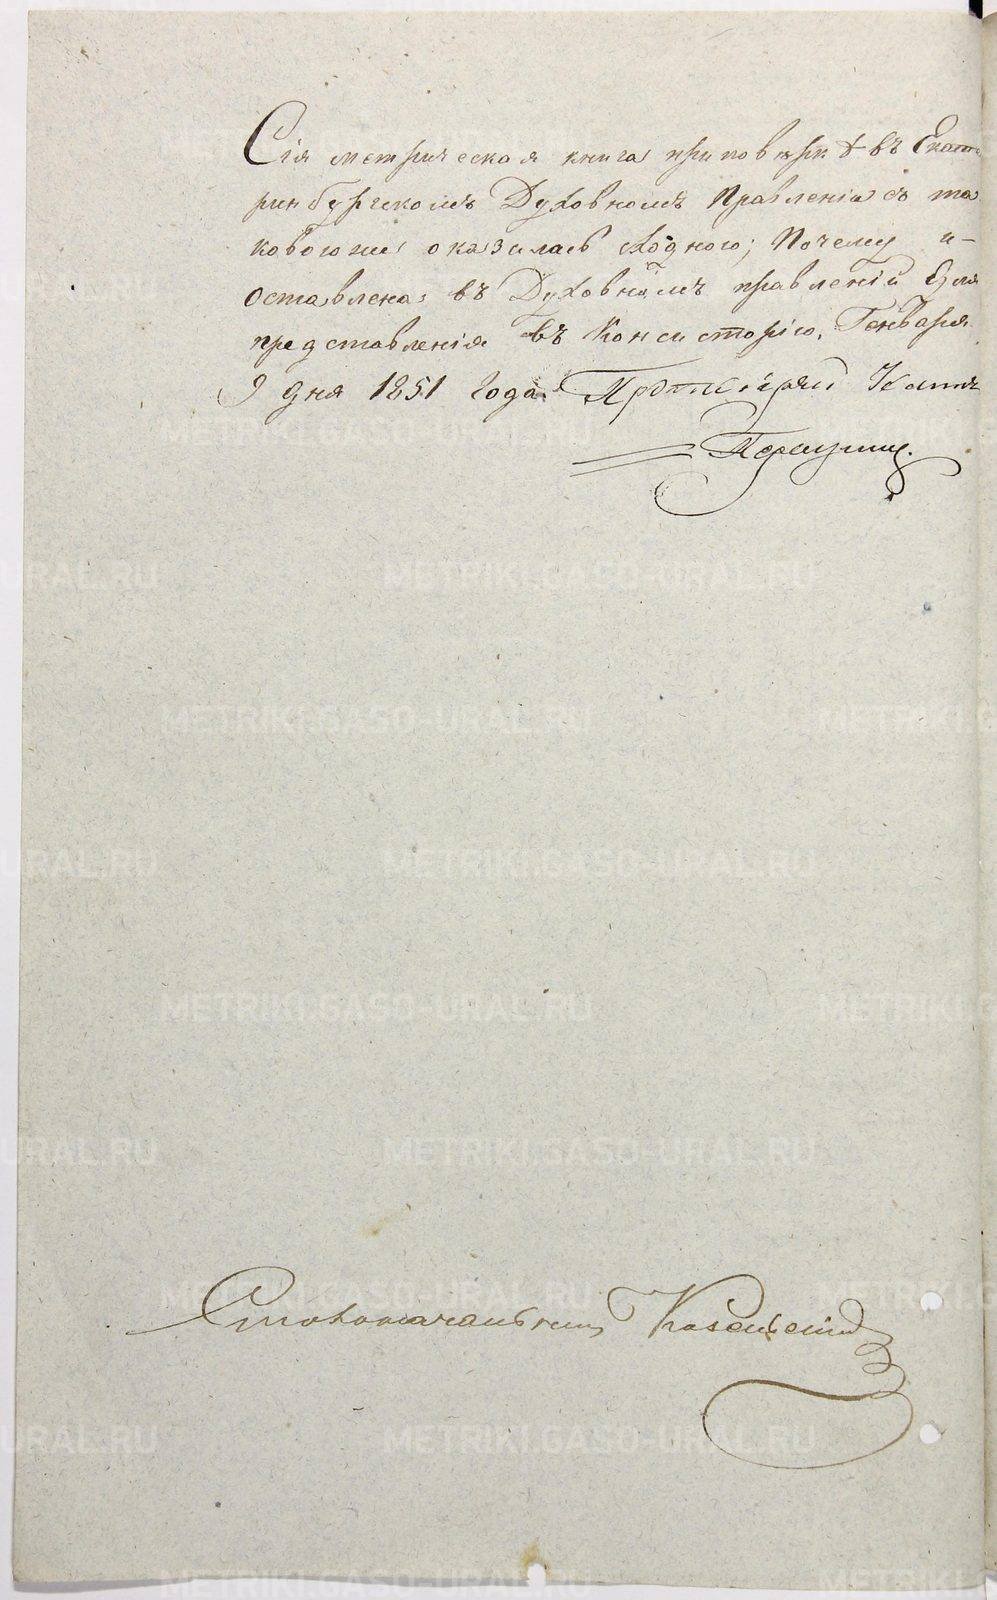 Сія метрическая книга при повѣркѣ въ Екате
ринбургскомъ Духовномъ Правленіи съ та
ковою же оказалась сходною; Почему и
оставлена въ Духовномъ правленіи для
представленія въ Консисторію, Генваря
9 дня 1851 года. Протоіерей
Столоначальникъ
METRIKI.GASO-URAL.RU